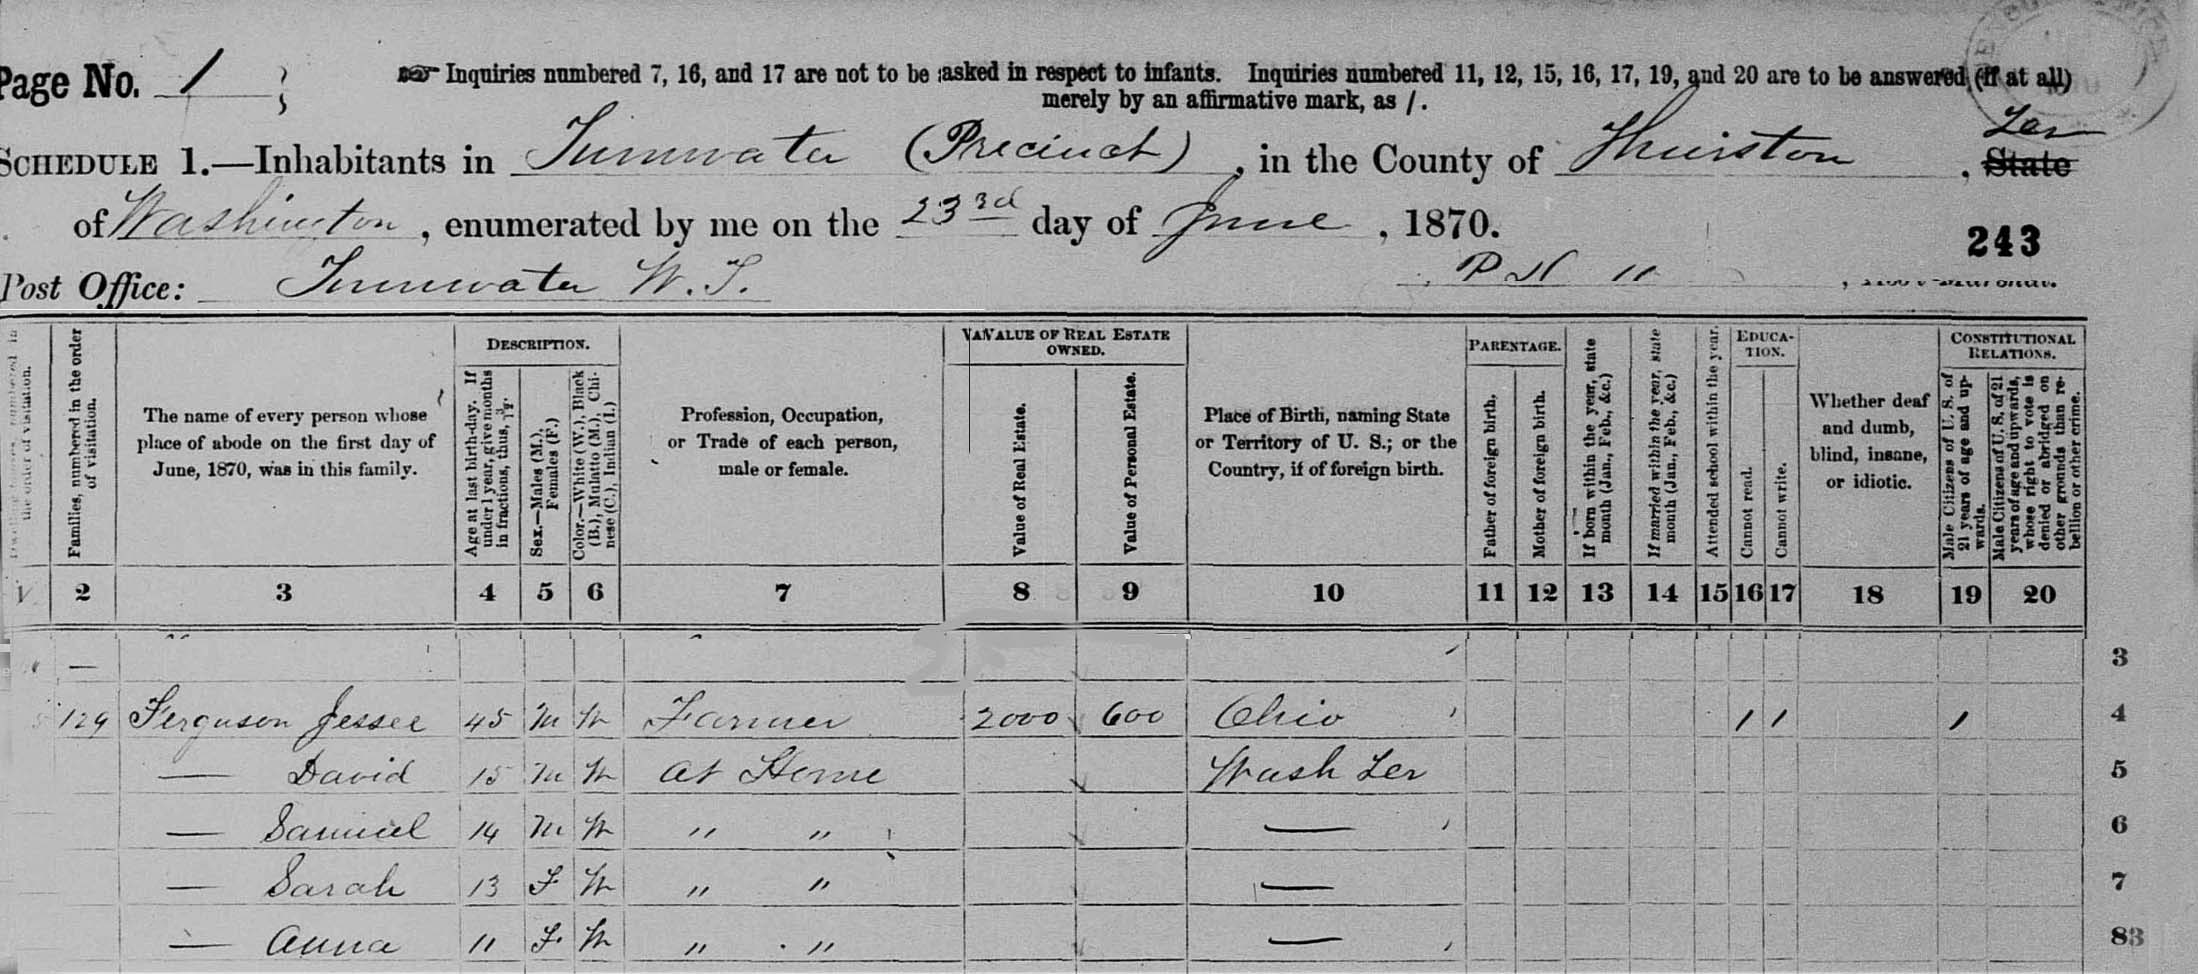 Page No. 1
☞ Inquiries numbered 7, 16, and 17 are not to be asked in respect to infants. Inquiries numbered 11, 12, 15, 16, 17, 19, and 20 are to be answered (if at all)
merely by an affirmative mark, as /.
Ter
SCHEDULE 1.—Inhabitants in Tumwater (Precinct), in the County of Thurston, State
of Washington, enumerated by me on the 23rd day of June, 1870.
243
Post Office: Tumwater W. T.
DESCRIPTION.
VALUE OF REAL ESTATE OWNED.
PARENTAGE.
EDUCATION.
CONSTITUTIONAL RELATIONS.
the order of visitation.
Families, numbered in the order of visitation.
The name of every person whose place of abode on the first day of June, 1870, was in this family.
Age at last birth-day. If under 1 year, give months in fractions, thus, 3/12.
Sex.—Males (M.), Females (F.)
Color.—White (W.), Black (B.), Mulatto (M.), Chinese (C.), Indian (I.)
Profession, Occupation, or Trade of each person, male or female.
Value of Real Estate.
Value of Personal Estate.
Place of Birth, naming State or Territory of U. S.; or the Country, if of foreign birth.
Father of foreign birth.
Mother of foreign birth.
If born within the year, state month (Jan., Feb., &c.)
If married within the year, state month (Jan., Feb., &c.)
Attended school within the year.
Cannot read.
Cannot write.
Whether deaf and dumb, blind, insane, or idiotic.
Male Citizens of U. S. of 21 years of age and upwards.
Male Citizens of U. S. of 21 years of age and upwards, whose right to vote is denied or abridged on other grounds than rebellion or other crime.
2 3 4 5 6 7 8 9 10 11 12 13 14 15 16 17 18 19 20
— 3
129 Ferguson Jessee 45 M W Farmer 2000 600 Ohio / / / 4
— David 15 M W At Home Wash Ter 5
— Samuel 14 M W " " — 6
— Sarah 13 F W " " — 7
— Anna 11 F W " " — 83